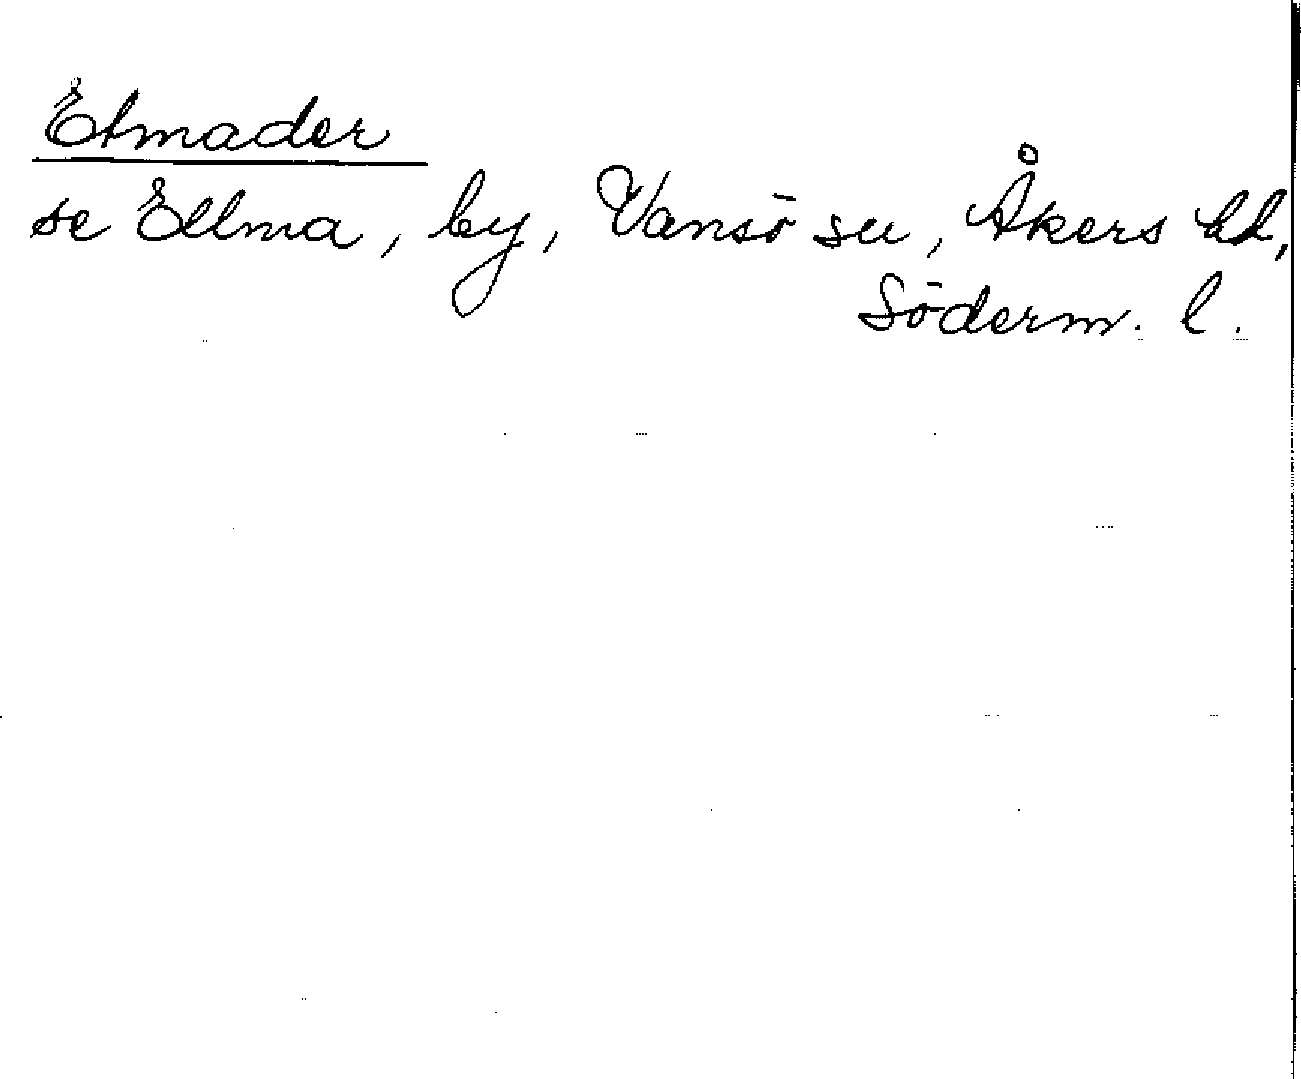 Etmader
se Ellma, by, Vansö sn, Åkers hd,
Söderm. l.